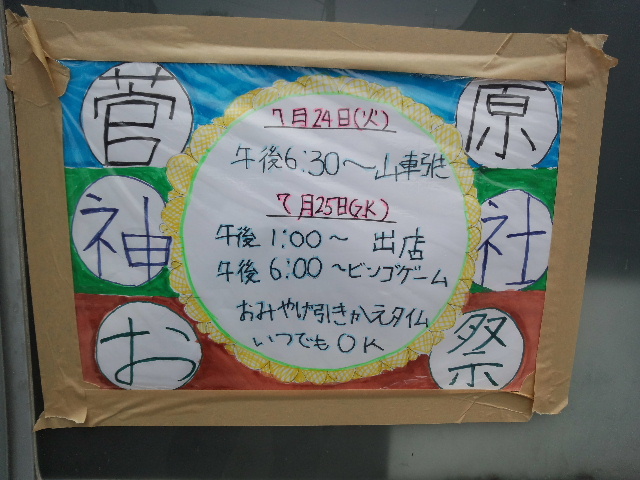 菅原
神社
お祭
7月24日(火)
午後6:30〜山車引き
7月25日(水)
午後1:00〜 出店
午後6:00〜ビンゴゲーム
おみやげ引きかえタイム
いつでもOK